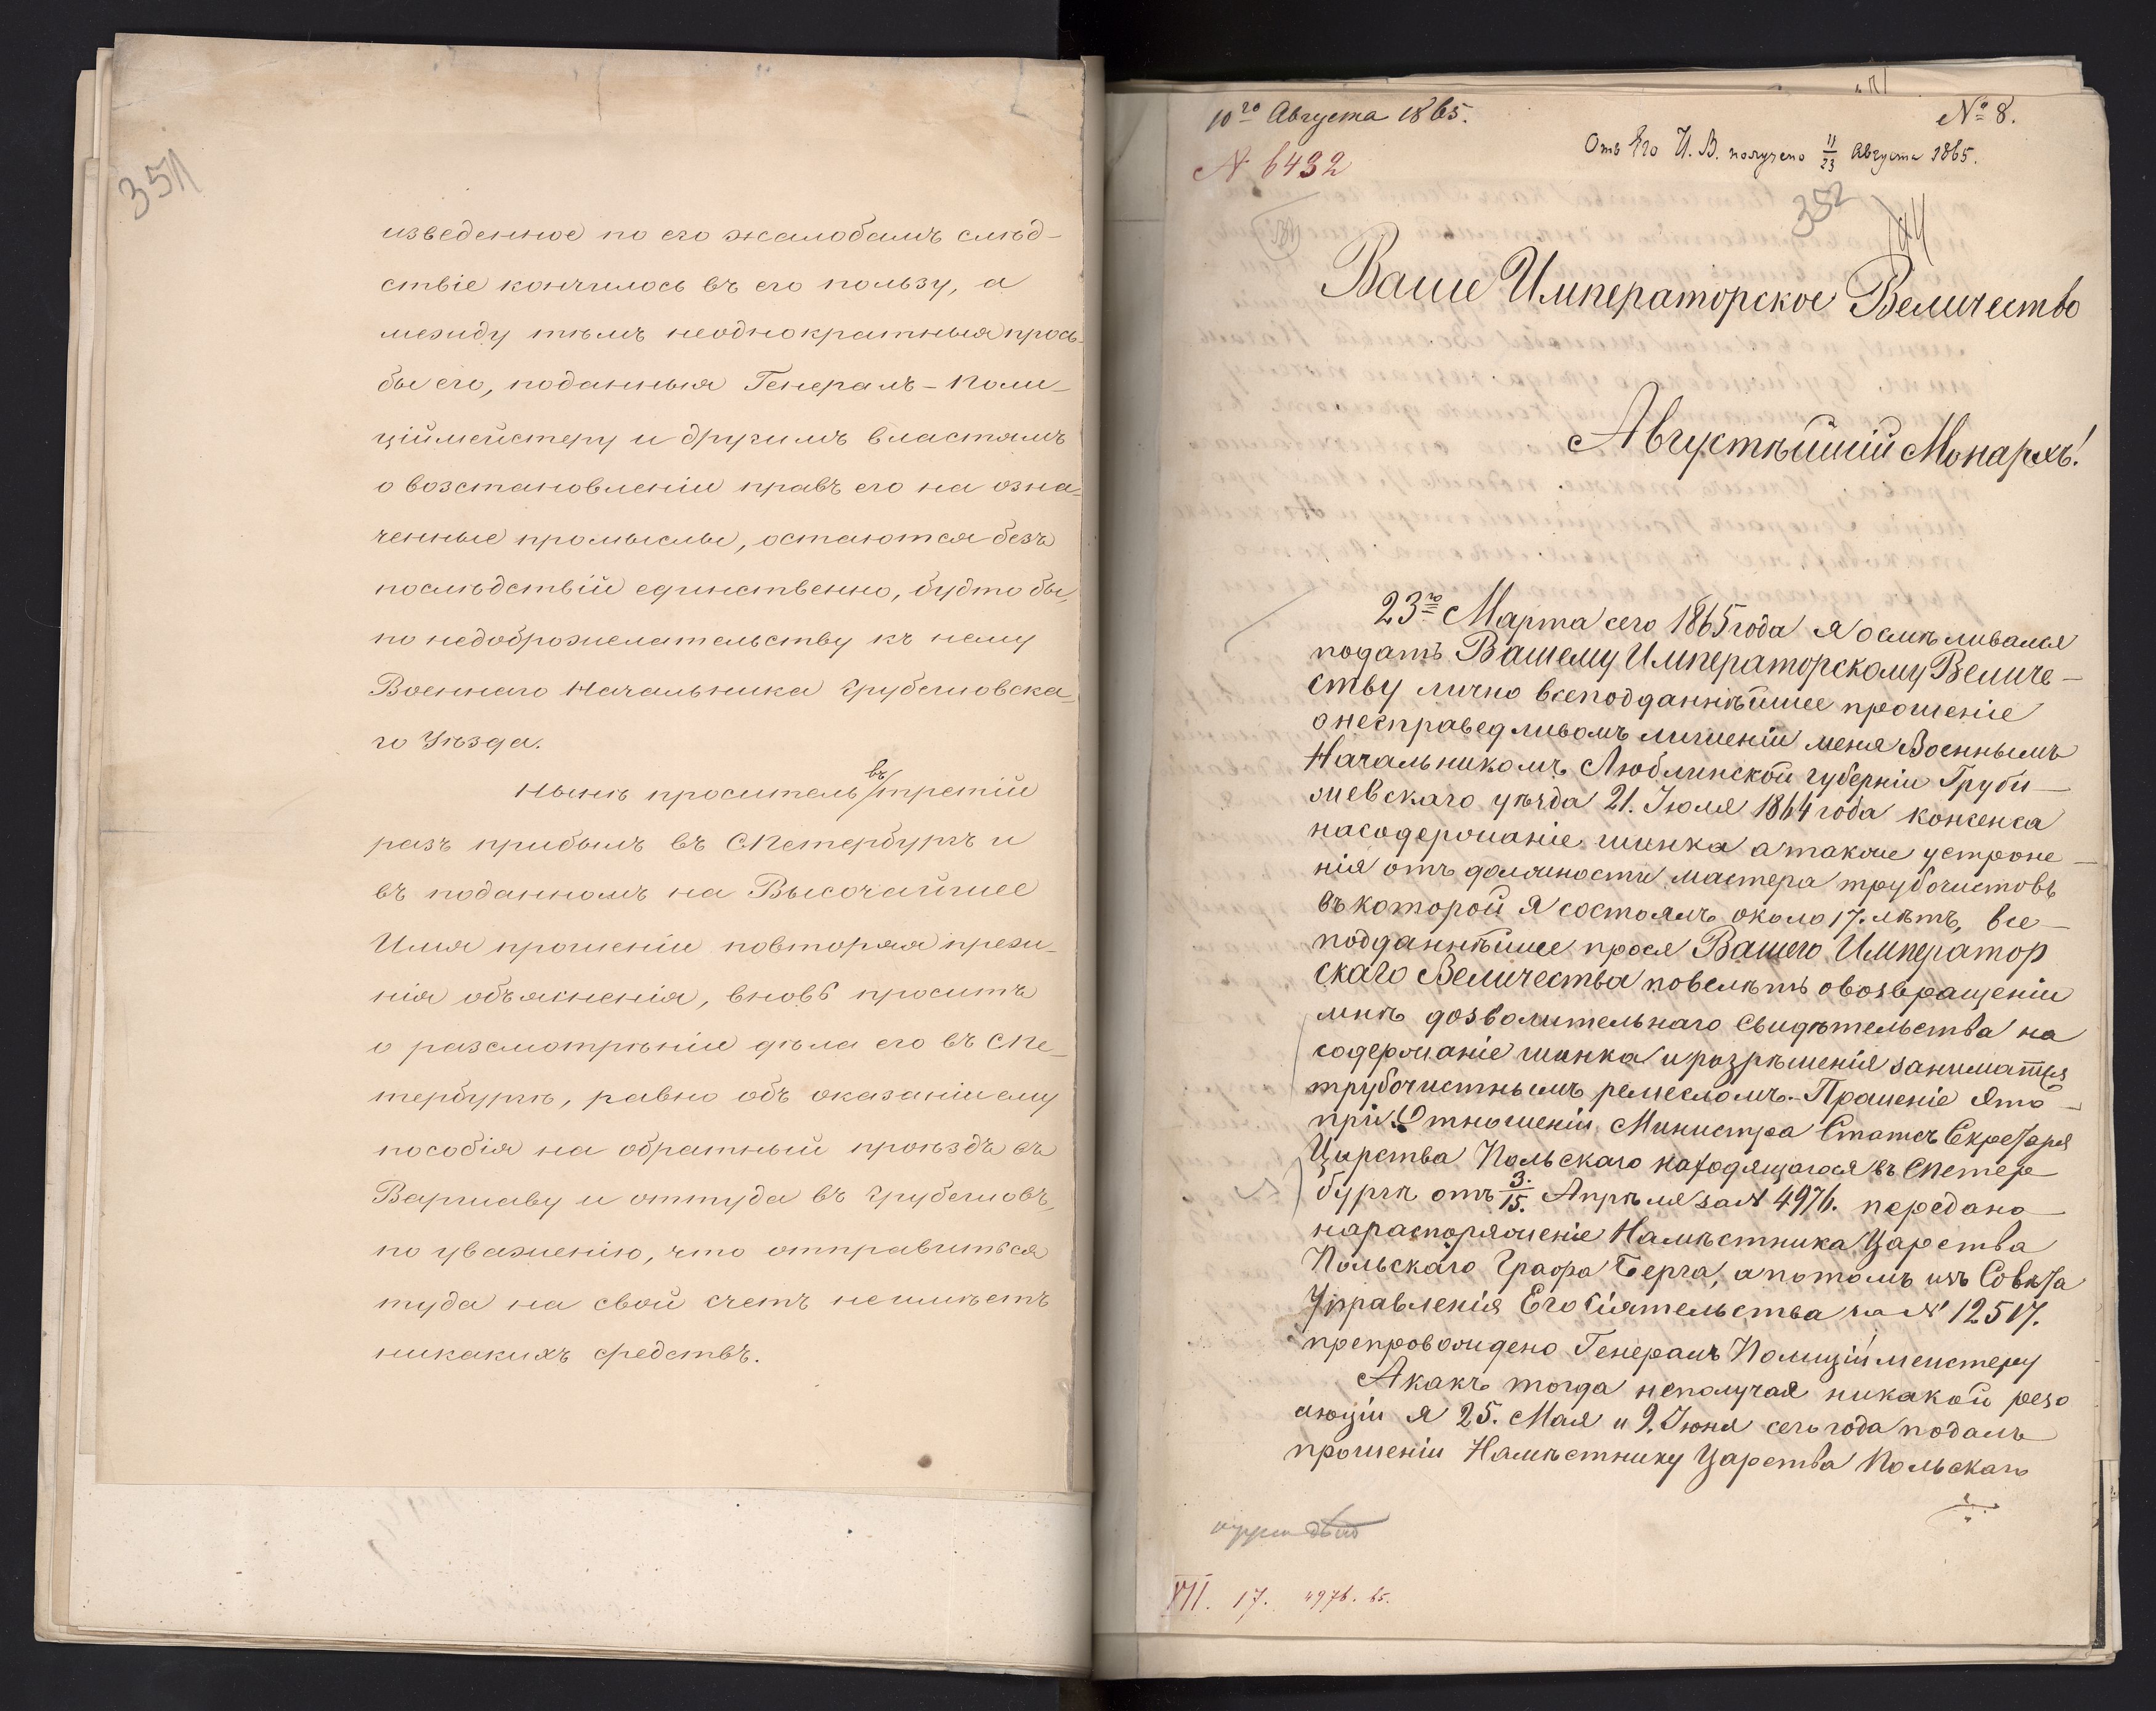 351
изведенное по его жалобамъ слѣд-
ствіе кончилось въ его пользу, а
между тѣмъ неоднократныя прось-
бы его, поданныя Генералъ-Поли-
ціймейстеру и другимъ властямъ
о возстановленіи правъ его на озна-
ченные промыслы, остаются безъ
послѣдствій единственно, будто бы,
по недоброжелательству къ нему
Военнаго Начальника Грубешовска-
го Уѣзда.
Нынѣ проситель въ третій
разъ прибылъ въ СПетербургъ и
въ поданномъ на Высочайшее
Имя прошеніи повторяя преж-
нія объясненія, вновь проситъ
о разсмотрѣніи дѣла его въ СПе-
тербургѣ, равно объ оказаніи ему
пособія на обратный проѣздъ въ
Варшаву и оттуда въ Грубешовъ,
по уваженію, что отправиться
туда на свой счетъ не имѣетъ
никакихъ средствъ.
10го Августа 1865.
№ 8.
Отъ Его И. В. получено 11/23 Августа 1865.
№ 6432
352
Ваше Императорское Величество
Августѣйшій Монархъ!
23го Марта сего 1865 года я осмѣливался
подать Вашему Императорскому Величе-
ству лично всеподданнѣйшее прошеніе
о несправедливомъ лишеніи меня Военнымъ
Начальникомъ Люблинской губерніи Груби-
шевскаго уѣзда 21. Іюля 1864 года консенса
на содержаніе шинка а также устроне-
нія отъ должности мастера трубочистовъ
въ которой я состоялъ около 17. лѣтъ, все-
подданнѣйше прося Вашего Император
скаго Величества повелѣть о возвращеніи
мнѣ дозволительнаго свидѣтельства на
содержаніе шинка и розрѣшенія заниматся
трубочистнымъ ремесломъ. Прошеніе я то-
при Отношеніи Министра Статсъ Секретаря
Царства Польскаго находящагося въ СПетер
бургѣ отъ 3./15. Апрѣля за № 4976. передано
на распоряженіе Намѣстника Царства
Польскаго Графа Берга, а потомъ изъ Совѣта
Управленія Его Сіятельства за № 12517.
препровождено Генералъ Полиціймейстеру
А какъ тогда неполучая никакой резо
люціи я 25. Мая и 9. Іюня сего года подалъ
прошеніи Намѣстнику Царства Польскаго
XII. 17. 4976. 65.